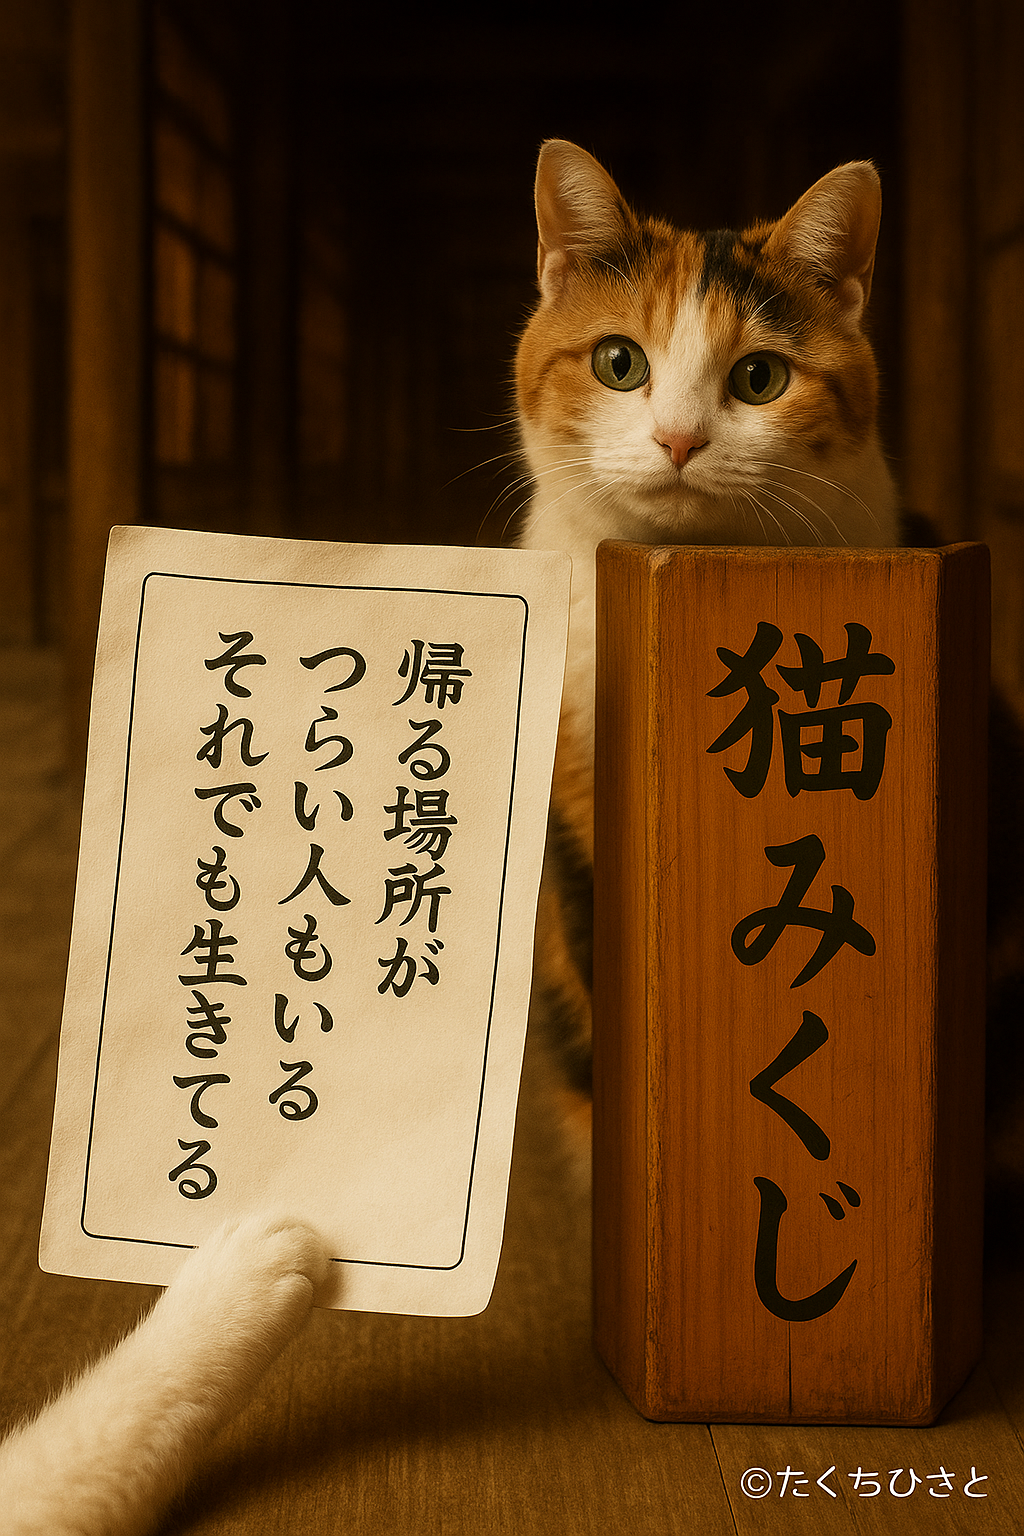 帰る場所が
つらい人もいる
それでも生きてる
猫みくじ
©たくちひさと